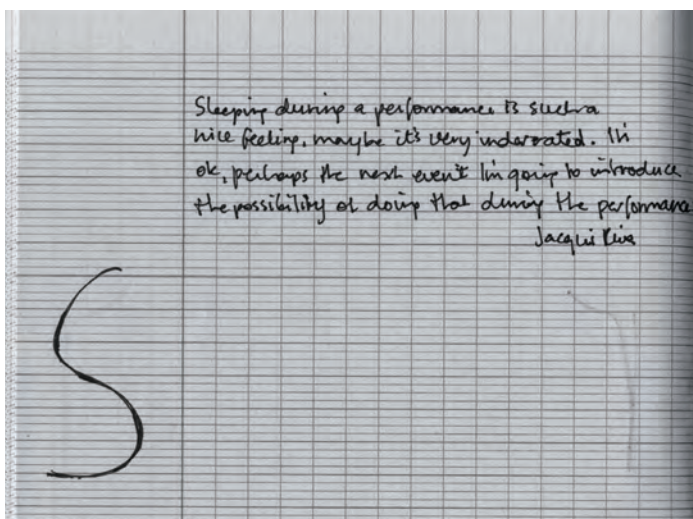 Sleeping during a performance is such a
nice feeling, maybe it's very underrated. It's
ok, perhaps the next event I'm going to introduce
the possibility of doing that during the performance
Jacqui
S